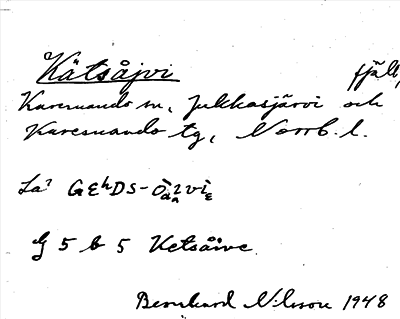 Kätsåjvi fjäll,
Karesuando sn, Jukkasjärvi och
Karesuando tg, Norrb. l.
G 5 b 5 Ketsåive
Bernhard Nilsson 1948